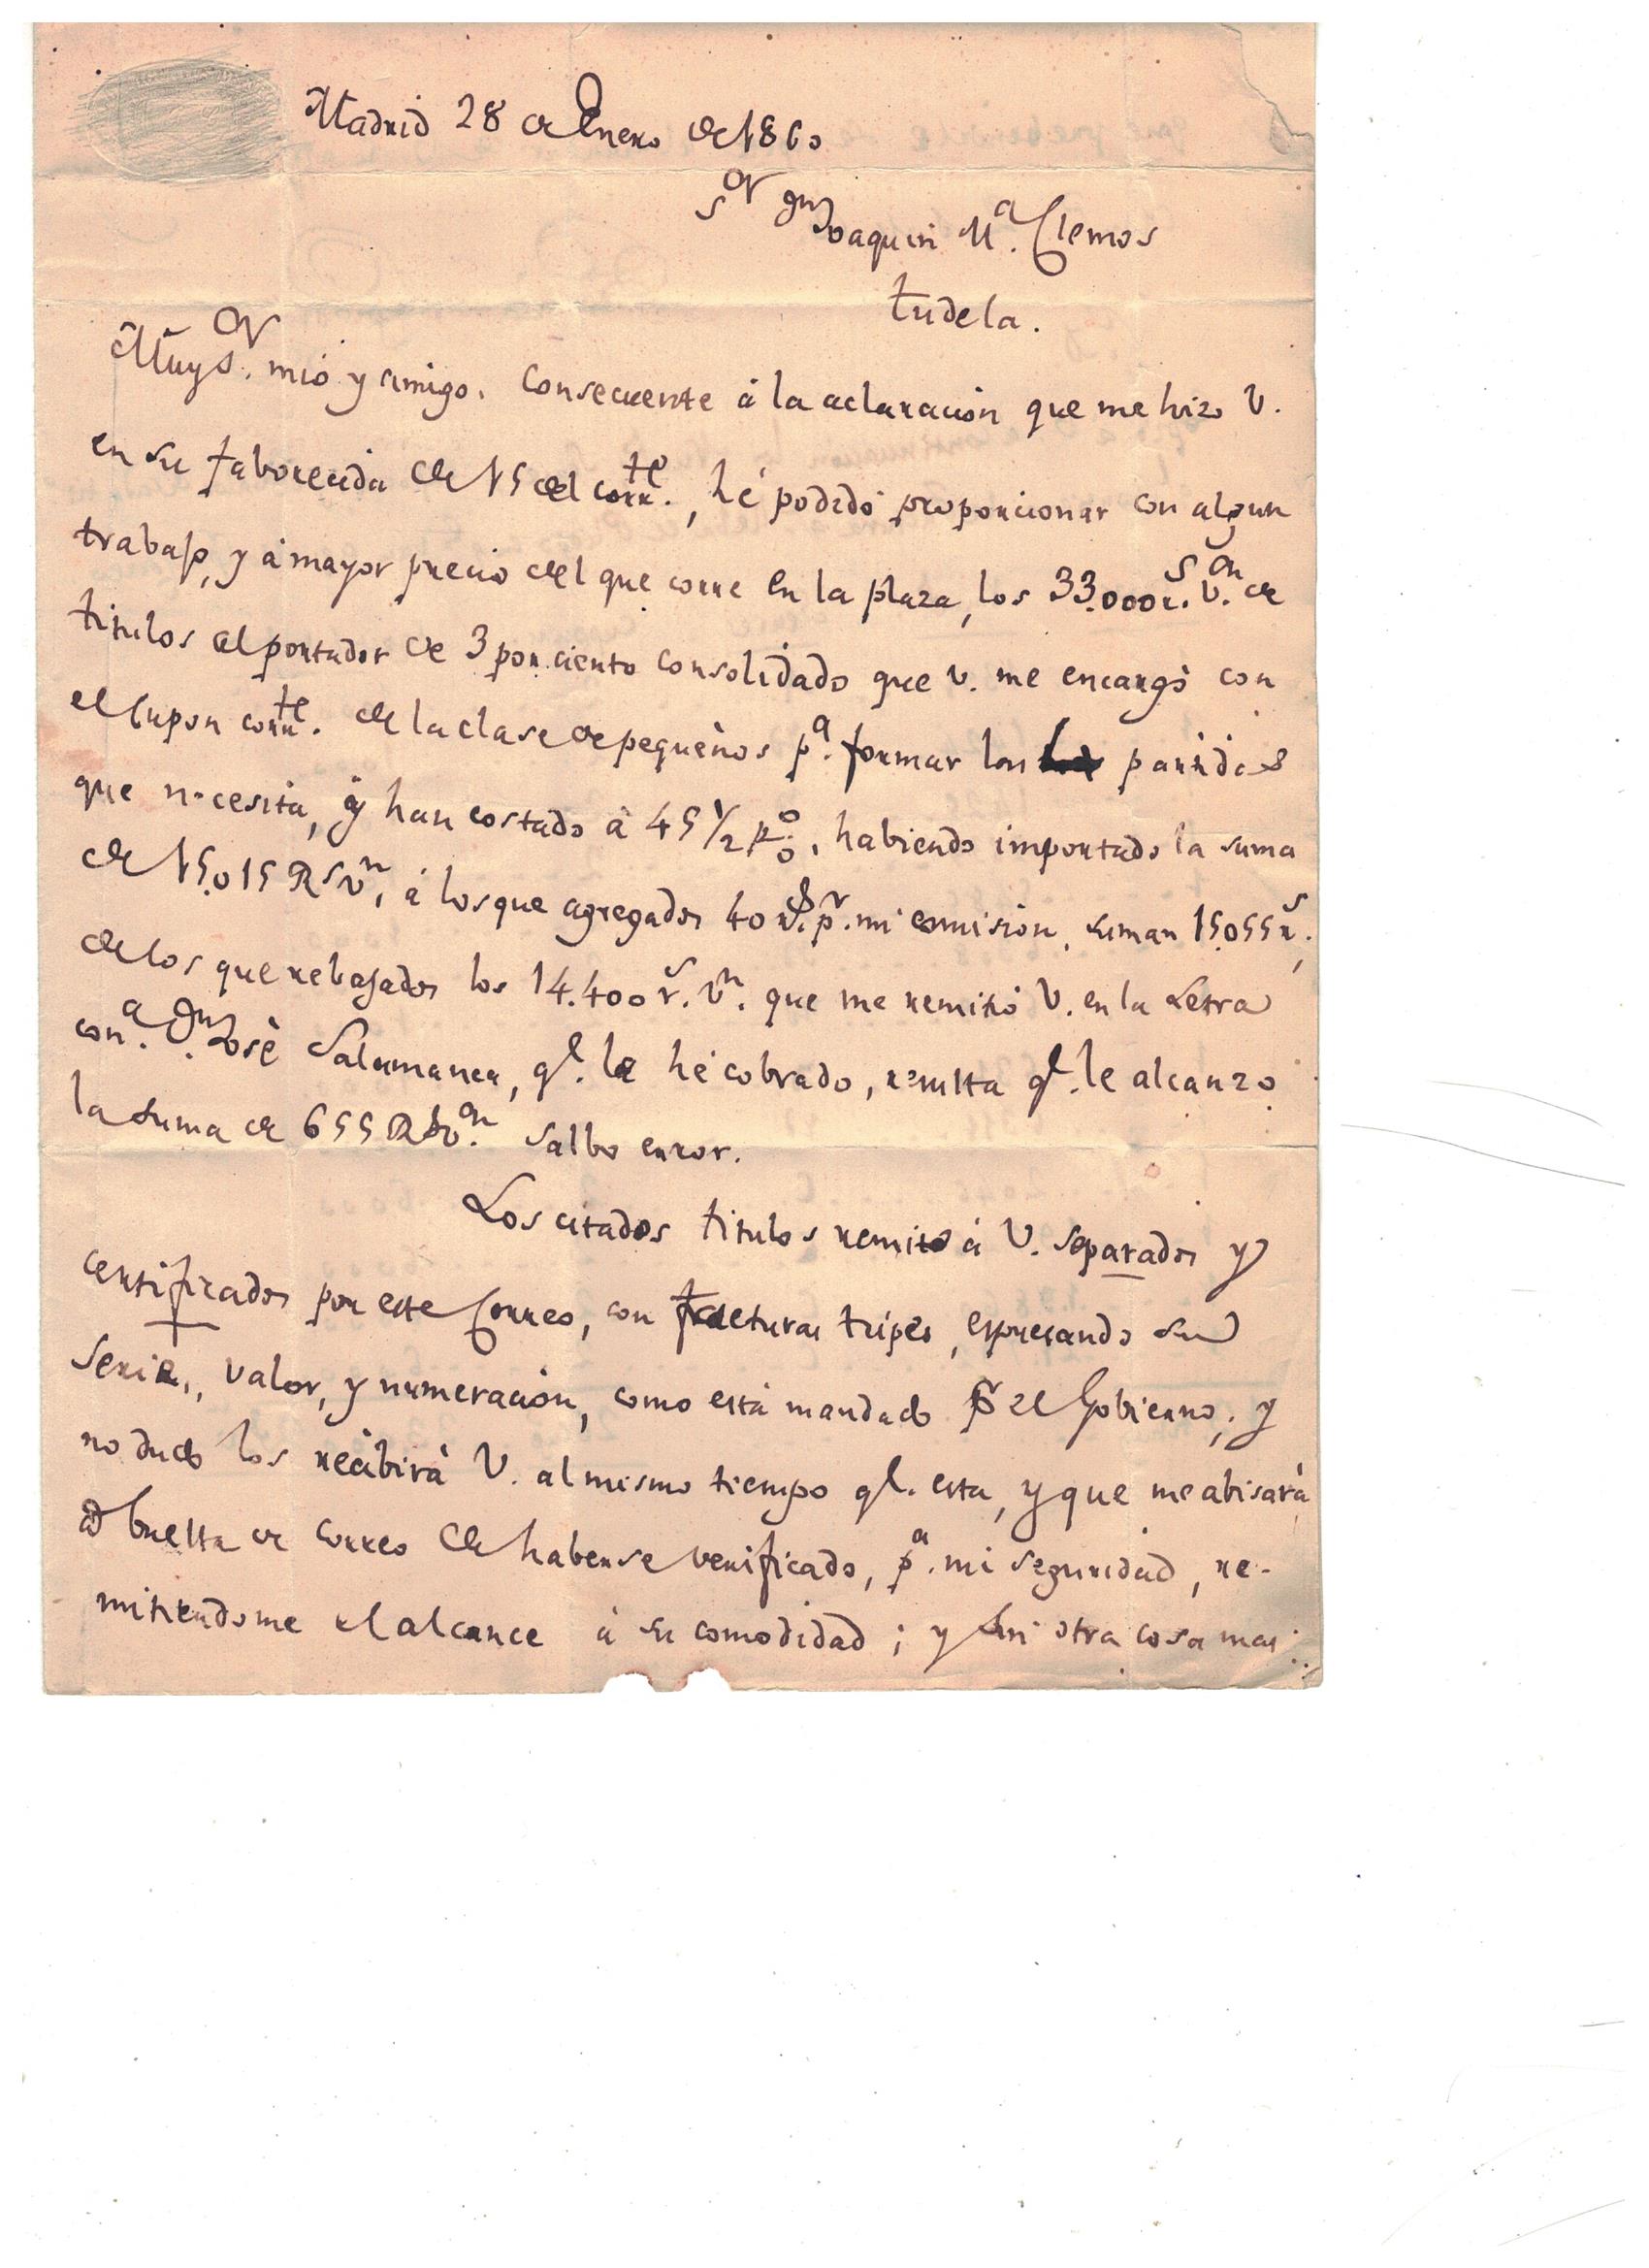 Madrid 28 de Enero de 1860
Sor Dn Joaquin Ma. Clemos
Tudela.
Muy Sor. mio y amigo. Consecuente á la aclaracion que me hizo V.
en su faborecida de 15 del corrte., hé podido proporcionar con algun
trabajo, y á mayor precio del que corre en la plaza, los 33.000 rs. von. de
titulos al portador de 3 por ciento consolidado que V. me encargó con
el Cupon corrte. de la clase de pequeños pa. formar las partidas
que necesita, y han costado á 45 1/2 p%, habiendo importado la suma
de 15.015 Rs vn, á los que agregados 40 rs. pr. mi comision, suman 15.055 rs.,
de los que rebajados los 14.400 rs. vn. que me remitió V. en la Letra
cona. Dn. José Salamanca, qe. la hé cobrado, resulta qe. le alcanzo
la suma de 655 Rs von. Salbo error.
Los citados titulos remito á V. separados y
certificados por este Correo, con facturas triples, espresando su
serie, valor, y numeracion, como está mandado pr el Gobierno; y
no dudo los recibirá V. al mismo tiempo qe. esta, y que me abisará
á buelta de correo de haberse verificado, pa. mi seguridad, re-
mitiendome el alcance á su comodidad; y sin otra cosa mas